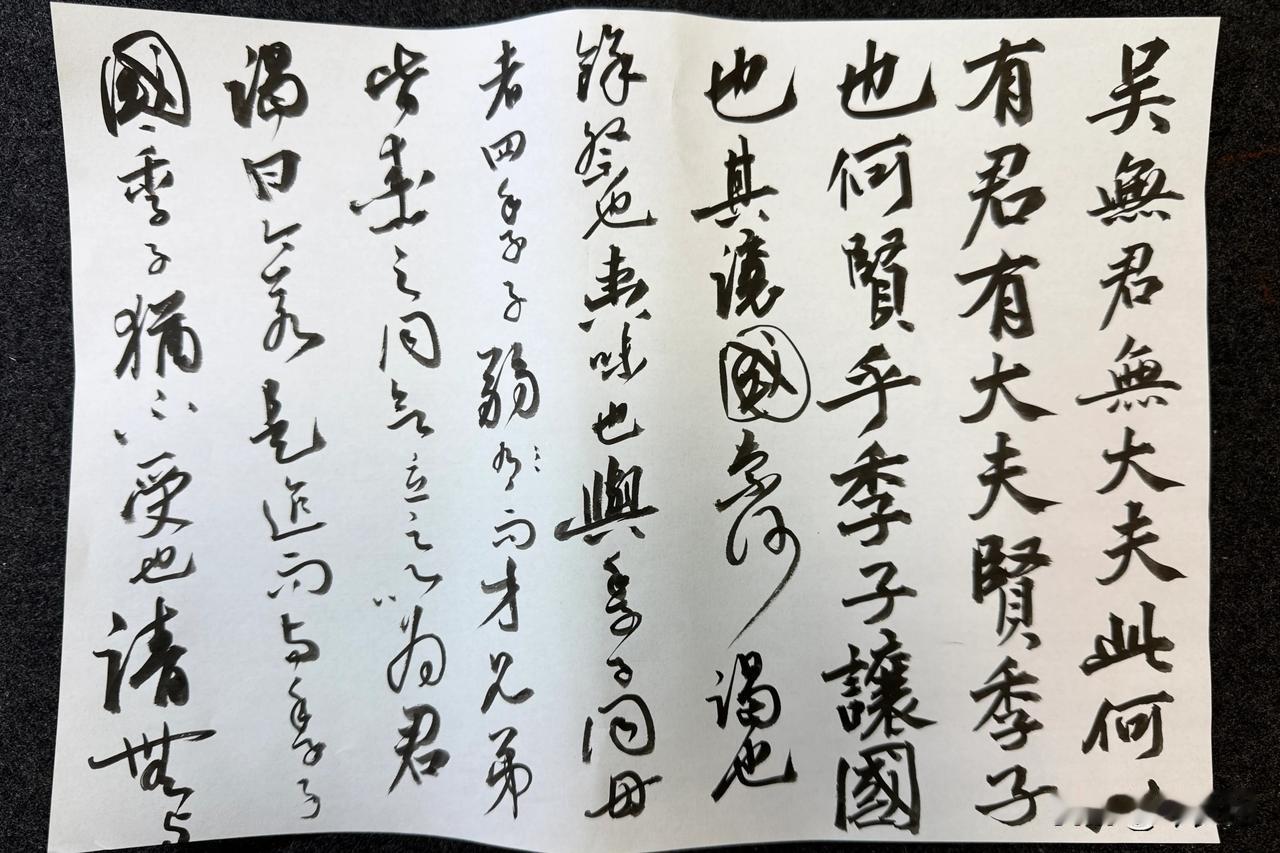 吳無君無大夫此何以
有君有大夫賢季子
也何賢乎季子讓國
也其讓國奈何謁也
餘祭也夷昧也與季子同母
者四季子弱而才兄弟
皆愛之同欲立之以為君
謁曰今若是迮而与季子
國季子猶不受也請無与